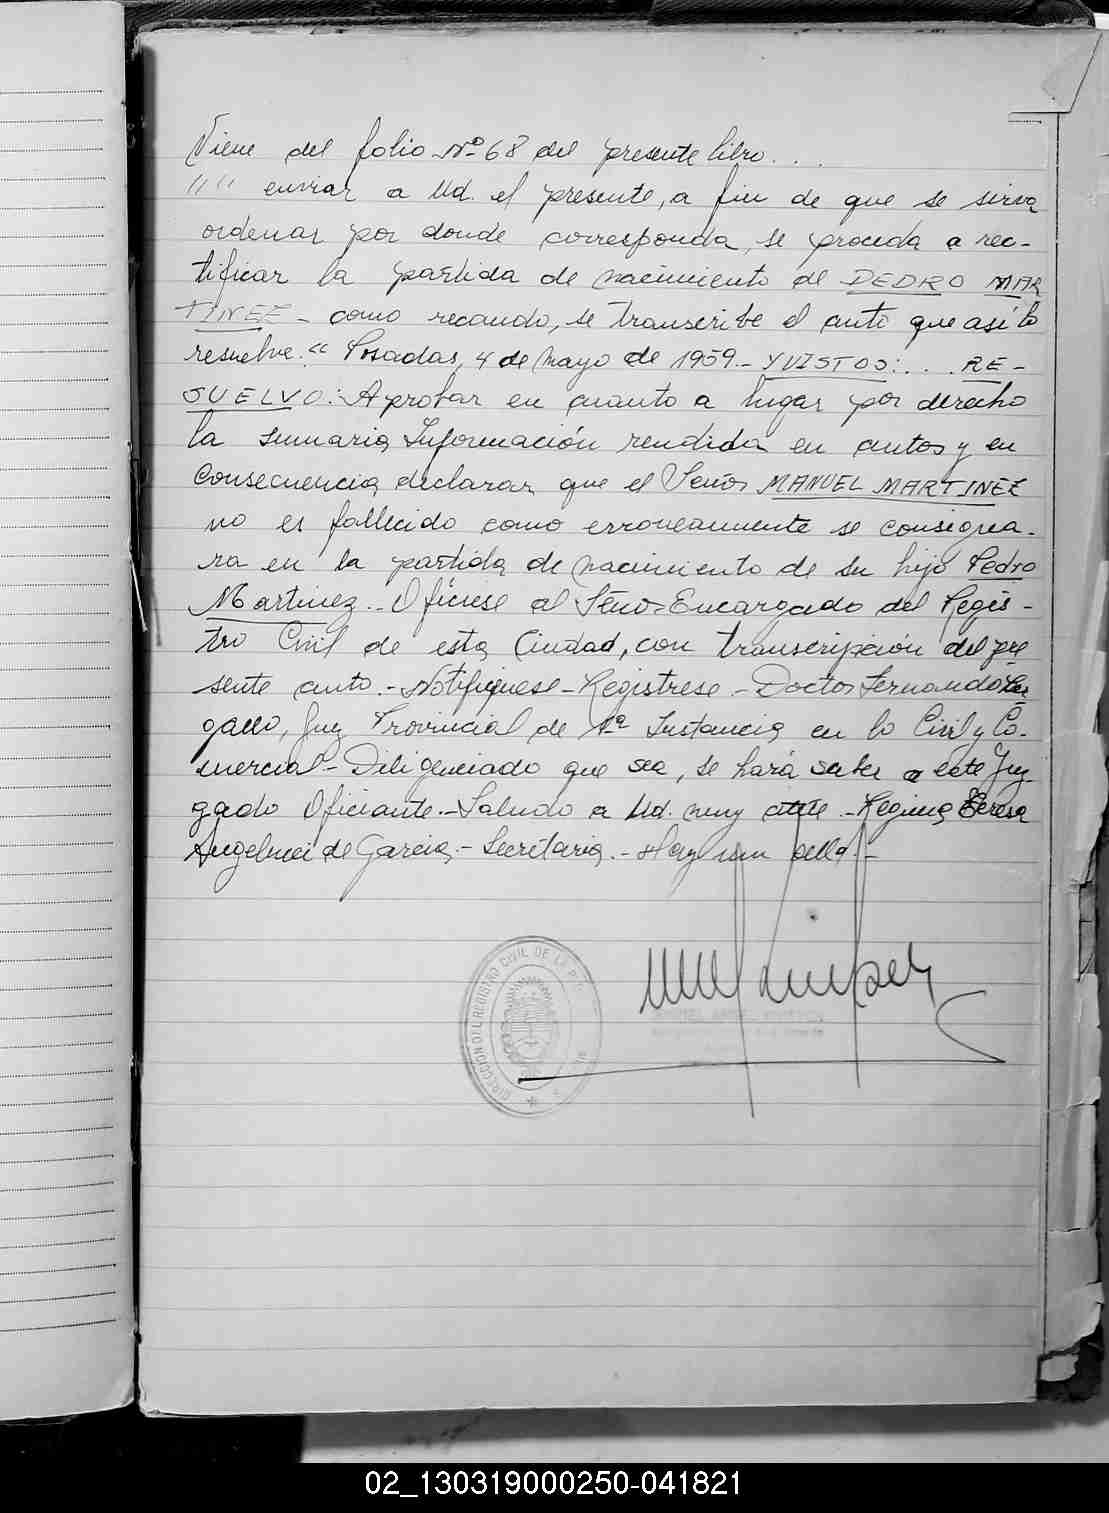 Viene del folio Nº 68 del presente libro. . .
"" enviar a Ud. el presente, a fin de que se sirva
ordenar por donde corresponda, se proceda a rec-
tificar la partida de nacimiento de PEDRO MAR
TINEZ - como recaudo, se transcribe el auto que así lo
resuelve. "Posadas, 4 de Mayo de 1959.- Y VISTOS: . . . RE-
SUELVO: Aprobar en cuanto a lugar por derecho
la sumaria Información rendida en autos y en
consecuencia declarar que el Señor MANUEL MARTINEZ
no es fallecido como erroneamente se consigna-
ra en la partida de nacimiento de su hijo Pedro
Martinez.- Ofíciese al Señor Encargado del Regis-
tro Civil de esta Ciudad, con transcripción del pre
sente auto.- Notifiquese - Registrese - Doctor Fernando
gallo, Juez Provincial de 1ª Instancia en lo Civil y Co-
mercial - Diligenciado que sea, se hará saber a este Juz
gado Oficiante.- Saludo a Ud. muy atte.- Regina Teresa
de Garcia.- Secretaria.- Hay un sello.-
DIRECCION DEL REGISTRO CIVIL DE LA
02_130319000250-041821